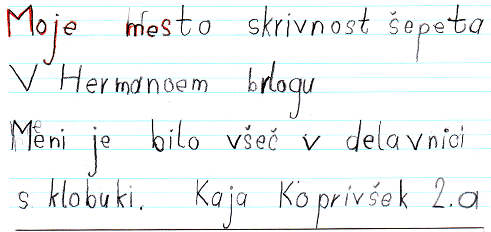 Moje mesto skrivnost šepeta
V Hermanoem brlogu
Meni je bilo všeč v delavnici
s klobuki. Kaja Koprivšek 2.a